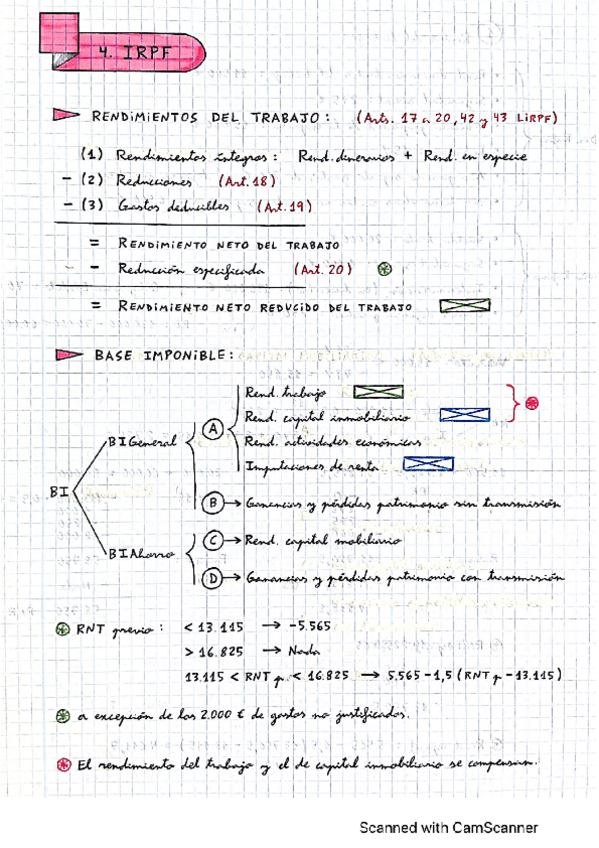 4. IRPF
RENDIMIENTOS DEL TRABAJO: (Arts. 17 a 20, 42 y 43 LIRPF)
(1) Rendimientos íntegros: Rend. dinerarios + Rend. en especie
- (2) Reducciones (Art. 18)
- (3) Gastos deducibles (Art. 19)
= RENDIMIENTO NETO DEL TRABAJO
- Reducción especificada (Art. 20)
= RENDIMIENTO NETO REDUCIDO DEL TRABAJO
BASE IMPONIBLE:
Rend. trabajo
Rend. capital inmobiliario
BIGeneral A
Rend. actividades económicas
Imputaciones de renta
BI
B → Ganancias y pérdidas patrimonio sin transmisión
C → Rend. capital mobiliario
BIAhorro
D → Ganancias y pérdidas patrimonio con transmisión
RNT previo: < 13.115 → -5.565
> 16.825 → Nada
13.115 < RNT p. < 16.825 → 5.565 - 1,5 (RNT p - 13.115)
a excepción de los 2.000 € de gastos no justificados.
El rendimiento del trabajo y el de capital inmobiliario se compensan.
Scanned with CamScanner